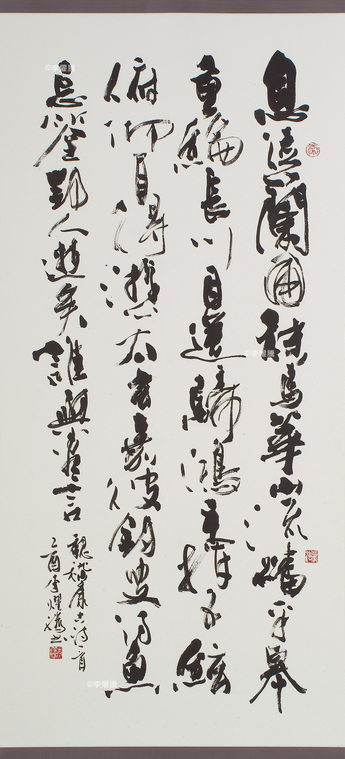 息徒蘭圃秣馬華山流磻平皋
垂綸長川目送歸鴻手揮五絃
俯仰自得游心太玄嘉彼釣叟得魚
忘筌郢人逝矣誰與盡言
魏嵇康古詩一首
乙酉李